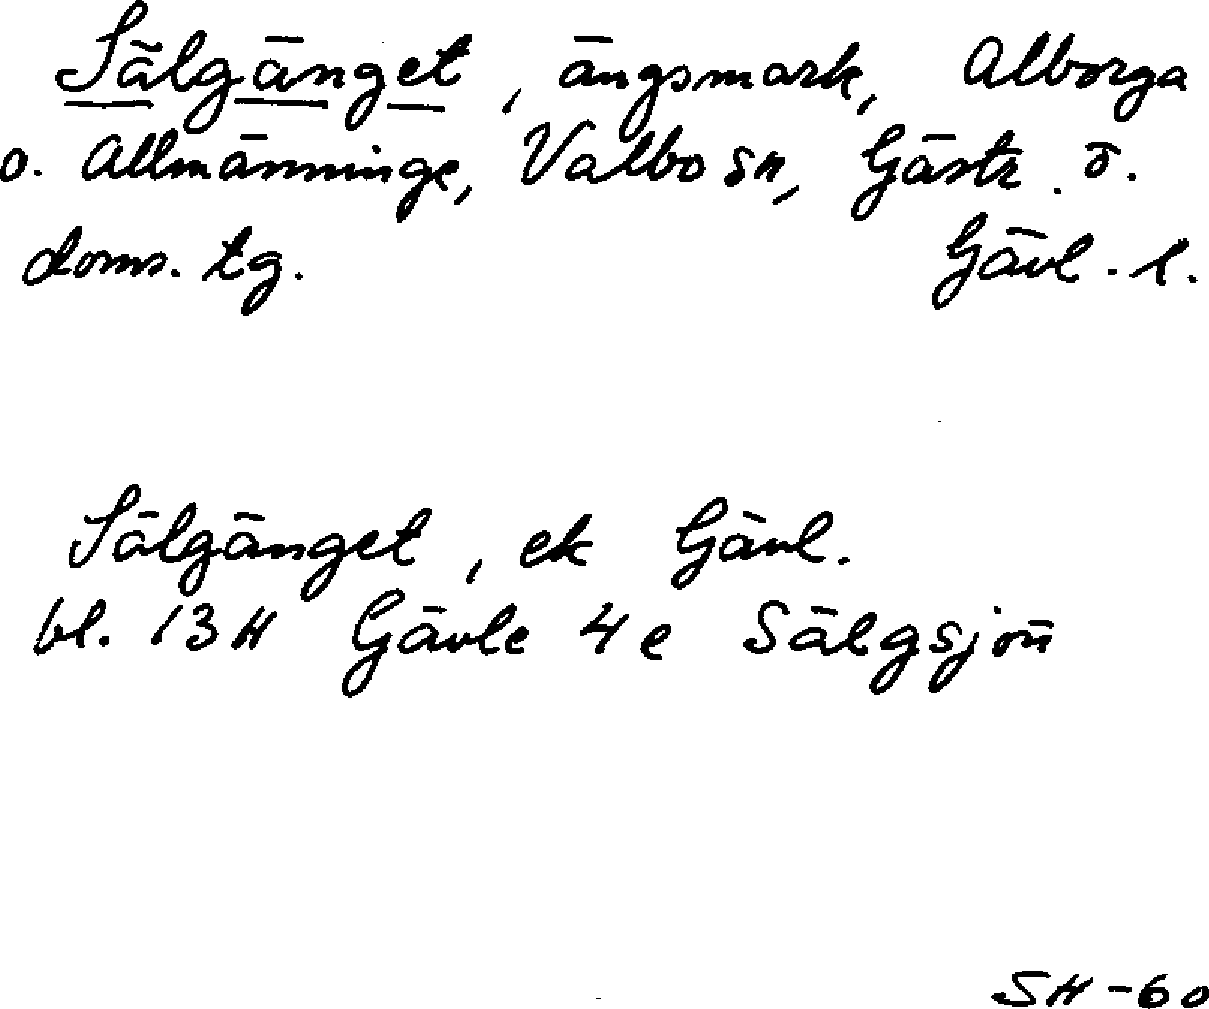 Sälgänget, ängsmark, Alborga
o. Allmänninge, Valbo sn, Gästr. ö.
doms. tg. Gävl. l.
Sälgänget, ek Gävl.
bl. 13H Gävle 4e Sälgsjön
SH-60